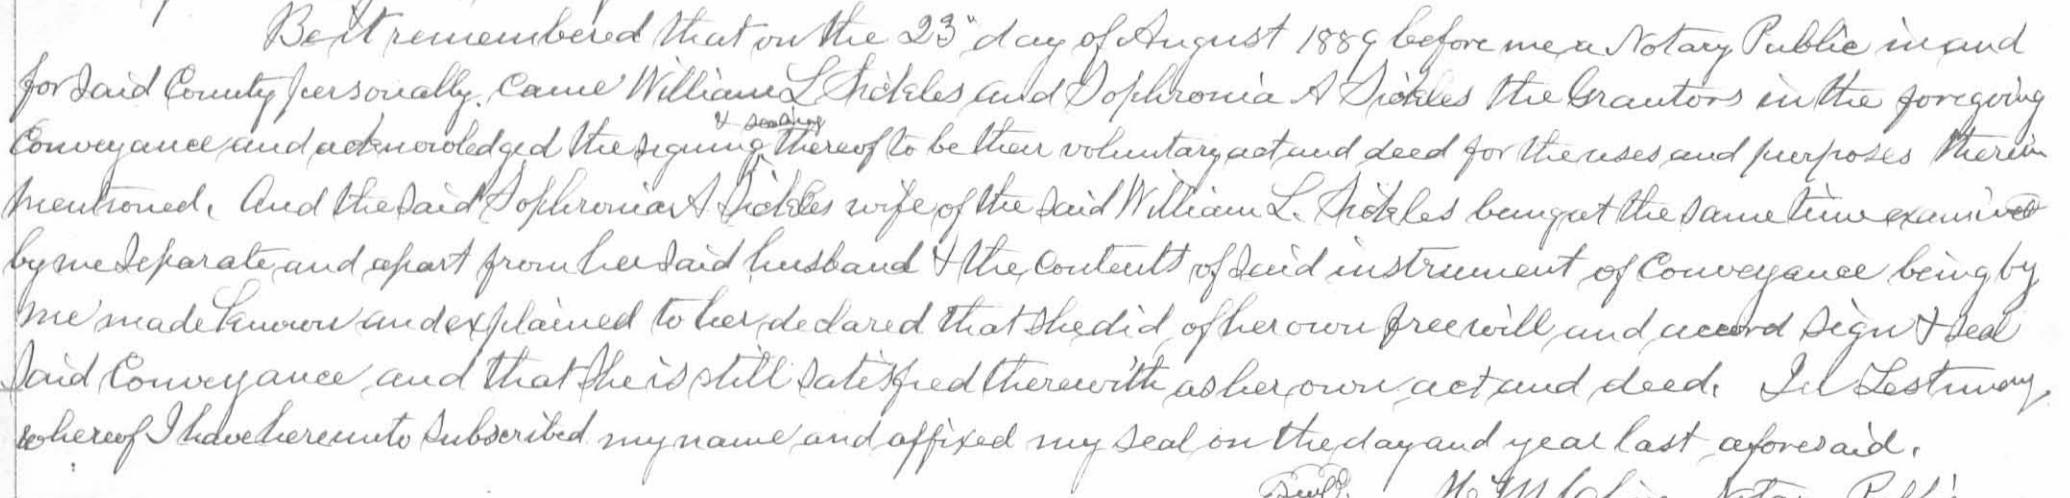 Be it remembered that on the 23" day of August 1889 before me a Notary Public in and
for said County personally came William L Sickles and Sophronia A Sickles the Grantors in the foregoing
& sealing
Conveyance and acknowledged the signing thereof to be their voluntary act and deed for the uses and purposes therein
mentioned. And the said Sophronia A Sickles wife of the said William L. Sickles being at the same time examined
by me separate and apart from her said husband & the contents of said instrument of Conveyance being by
me made known and explained to her declared that she did of her own free will and accord sign & seal
said Conveyance and that she is still satisfied therewith as her own act and deed. In Testimony
whereof I have hereunto subscribed my name and affixed my seal on the day and year last aforesaid.